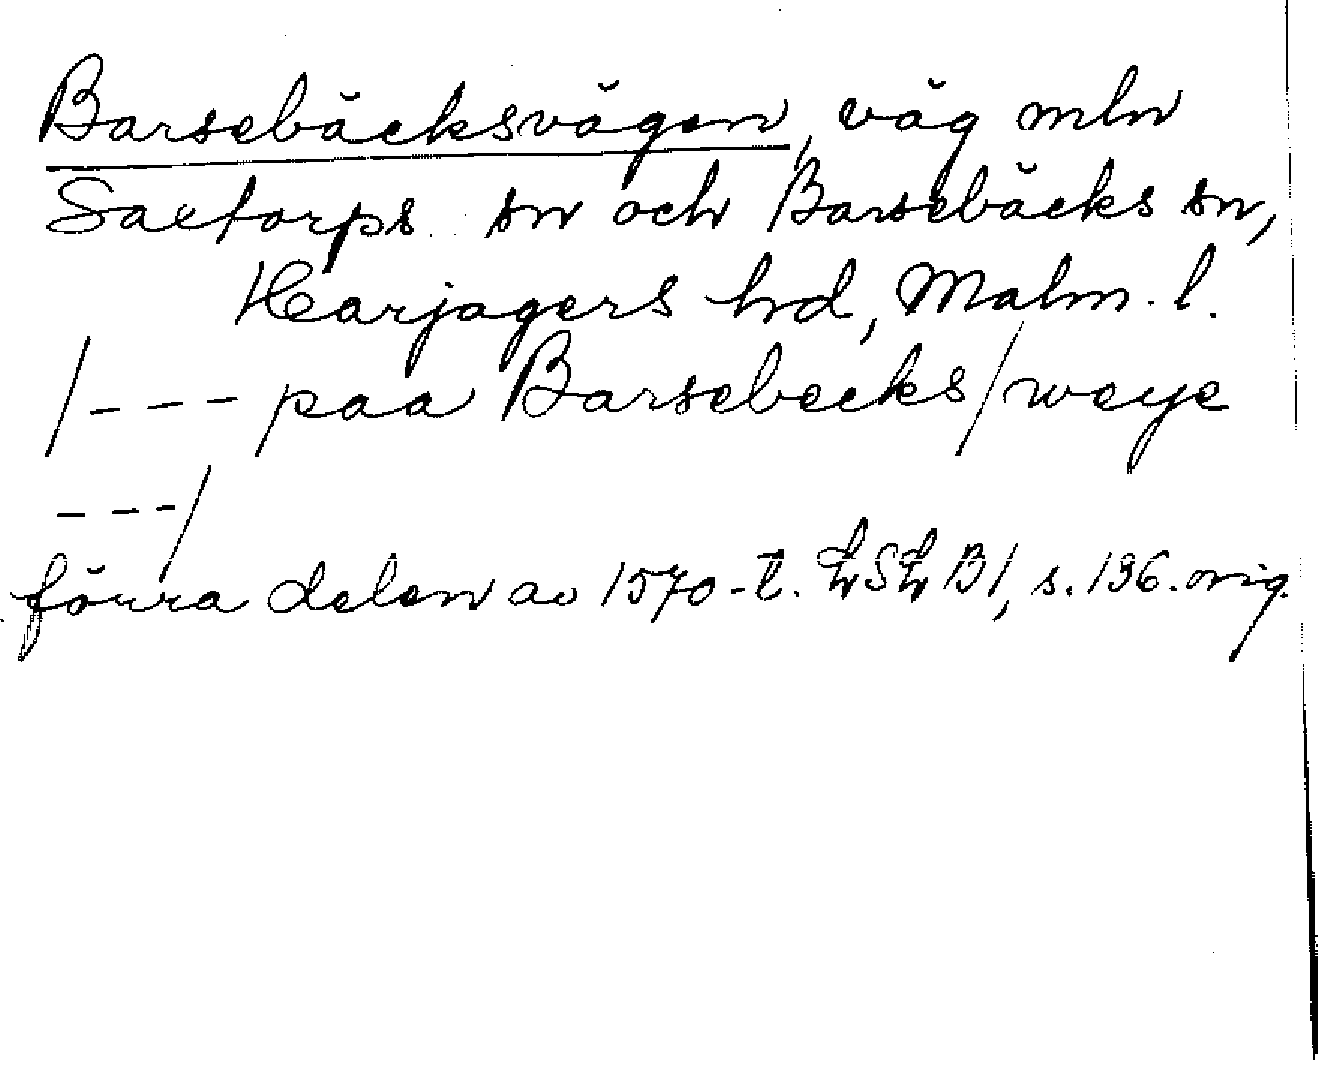 Barsebäcksvägen, väg mln
Saxtorps sn och Barsebäcks sn,
Harjagers hd, Malm. l.
/--- paa Barsebecks/weye
---/
förra delen av 1570-t. LSL B1, s. 136. orig.